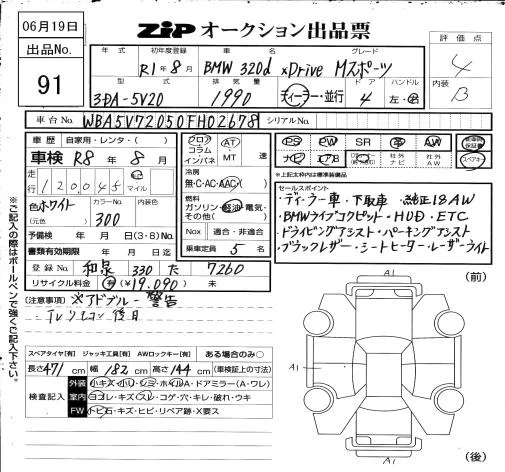 06月19日
出品No.
91
ZIP オークション出品票
評価点
4
内装
B
年式 初年度登録 車名 グレード
R1年8月 BMW 320d xDrive Mスポーツ
型式 排気量 ドア ハンドル
3DA-5V20 1990 ディーラー・並行 4 左・右
車台No. WBA5V72050FH02678 シリアルNo.
車歴 自家用・レンタ・( )
車検 R8年8月
走行 120,045 Km マイル
色 ホワイト (元色) カラーNo. 300 内装色
予備検 年 月 日(3・8)No.
書類有効期限 年 月 日迄
登録No. 和泉 330 た 7260
リサイクル料金 有(¥19,090) 未
フロア コラム インパネ AT MT 速
冷房 無・C・AC・AAC( )
燃料 ガソリン・軽油・電気・その他( )
Nox 適合・非適合
乗車定員 5 名
PS PW SR 革 AW
ナビ エアB 社外ナビ 社外AW
スペアキー
*上記太枠内は標準装備品
セールスポイント
・ディーラー車・下取車・純正18AW
・BMWライブコクピット・HUD・ETC
・ドライビングアシスト・パーキングアシスト
・ブラックレザー・シートヒーター・レーザーライト
(注意事項) ※アドブルー警告
・TVリモコン後日
スペアタイヤ[有] ジャッキ工具[有] AWロックキー[有] ある場合のみ○
長さ471cm 幅182cm 高さ144cm (車検証上の寸法)
検査記入
外装 小キズ・小凹・シミ・ホイルA・ドアミラー(A・ワレ)
室内 ヨゴレ・キズ・スレ・コゲ・穴・キレ・破れ・ウキ
FW トビ石・キズ・ヒビ・リペア跡・X要ス
※ご記入の際はボールペンで強くご記入下さい。
A1
(前)
A1
A1
(後)